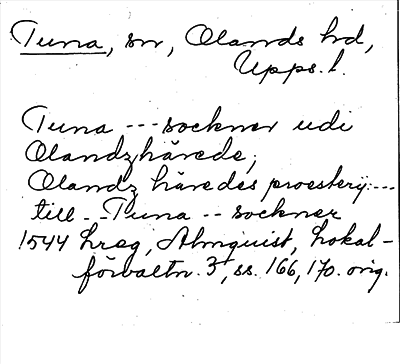 Tuna, sn, Olands hd,
Upps. l.
Tuna --- socknar udi
Olandz härede;
Olandz häredes proesterij ---
till -- Tuna -- socknar
1544 hreg, Almquist, Lokal-
förvaltn. 3, ss. 166, 170. orig.